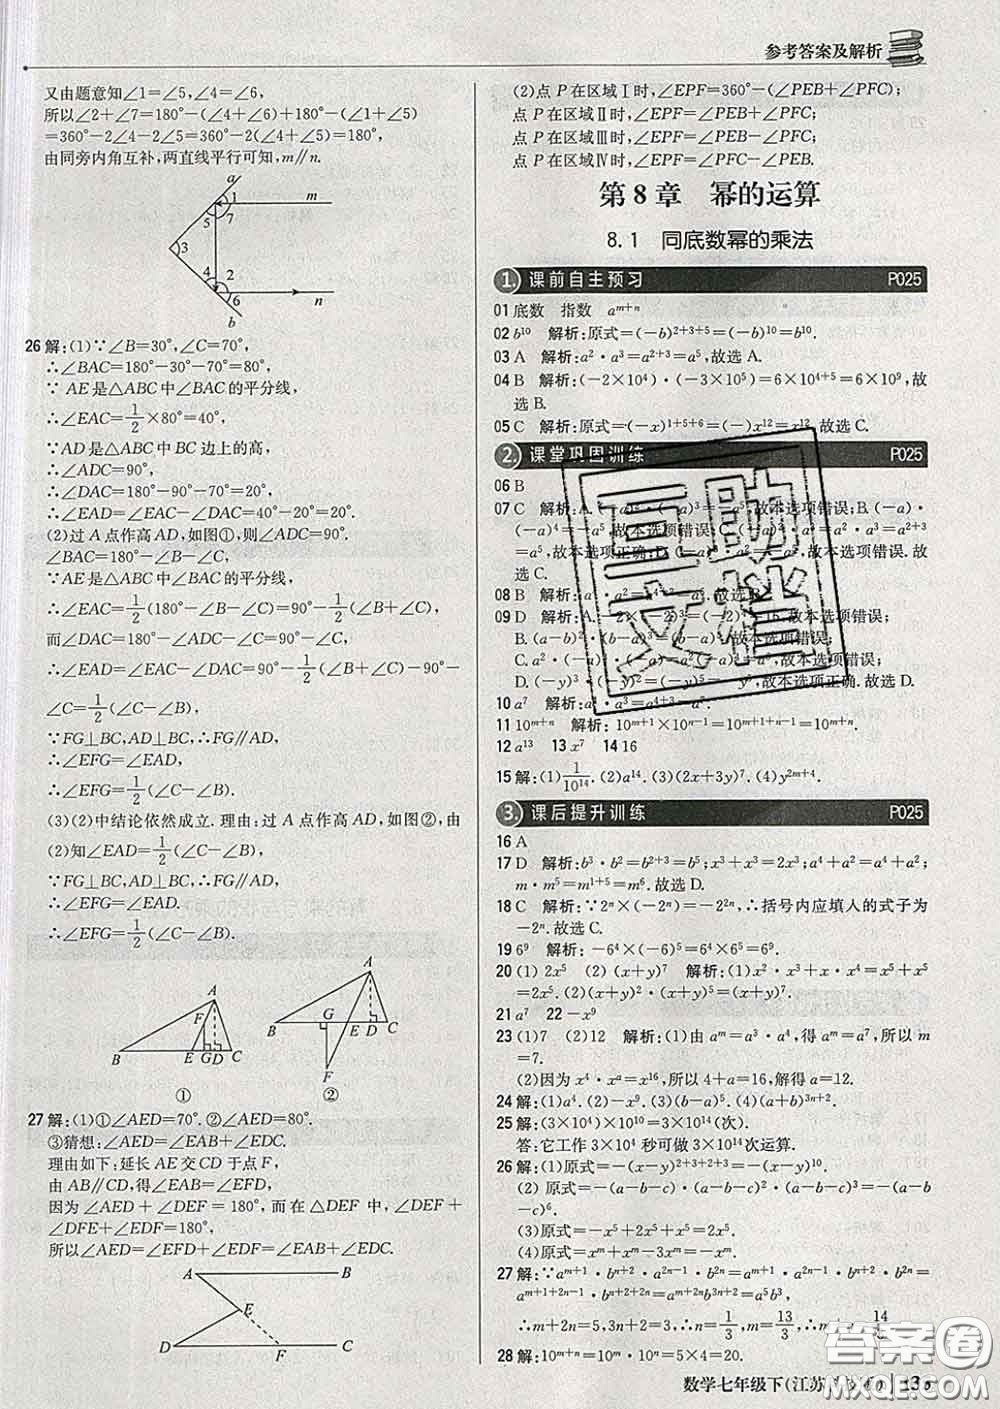 参考答案及解析
又由题意知∠1=∠5,∠4=∠6,
所以∠2+∠7=180°-(∠4+∠6)+180°-(∠1+∠5)
=360°-2∠4-2∠5=360°-2(∠4+∠5)=180°,
由同旁内角互补,两直线平行可知,m∥n.
a
1
m
5
7
3
4
2
6
n
b
26 解:(1)∵∠B=30°,∠C=70°,
∴∠BAC=180°-30°-70°=80°,
∵ AE是△ABC中∠BAC的平分线,
∴∠EAC=1/2×80°=40°,
∵AD是△ABC中BC边上的高,
∴∠ADC=90°,
∴∠DAC=180°-90°-70°=20°,
∴∠EAD=∠EAC-∠DAC=40°-20°=20°.
(2)过A点作高AD,如图①,则∠ADC=90°.
∠BAC=180°-∠B-∠C,
∵AE是△ABC中∠BAC的平分线,
∴∠EAC=1/2(180°-∠B-∠C)=90°-1/2(∠B+∠C),
而∠DAC=180°-∠ADC-∠C=90°-∠C,
∴∠EAD=∠EAC-∠DAC=90°-1/2(∠B+∠C)-90°-
∠C=1/2(∠B+∠C),
∵FG⊥BC,AD⊥BC,∴FG∥AD,
∴∠EFG=∠EAD,
∴∠EFG=1/2(∠C-∠B).
(3)(2)中结论依然成立.理由:过A点作高AD,如图②,由
(2)知∠EAD=1/2(∠C-∠B),
∵FG⊥BC,AD⊥BC,∴FG∥AD,
∴∠EFG=∠EAD.
∴∠EFG=1/2(∠C-∠B).
A
F
B E G D C
①
A
G
B E D C
F
②
27 解:(1)①∠AED=70°.②∠AED=80°.
③猜想:∠AED=∠EAB+∠EDC.
理由如下:延长AE交CD于点F,
由AB∥CD,得∠EAB=∠EFD,
因为∠AED+∠DEF=180°,而在△DEF中,∠DEF+
∠DFE+∠EDF=180°,
所以∠AED=∠EFD+∠EDF=∠EAB+∠EDC.
A B
E
D F C
(2)点P在区域Ⅰ时,∠EPF=360°-(∠PEB+∠PFC);
点P在区域Ⅱ时,∠EPF=∠PEB+∠PFC;
点P在区域Ⅲ时,∠EPF=∠PEB-∠PFC;
点P在区域Ⅳ时,∠EPF=∠PFC-∠PEB.
第8章 幂的运算
8.1 同底数幂的乘法
1. 课前自主预习 P025
01 底数 指数 a^{m+n}
02 b^{10} 解析:原式=(-b)^{2+3+5}=(-b)^{10}=b^{10}.
03 A 解析:a²·a³=a^{2+3}=a⁵,故选A.
04 B 解析:(-2×10⁴)·(-3×10⁵)=6×10^{4+5}=6×10⁹,故
选B.
05 C 解析:原式=(-x)^{1+5+6}=(-x)^{12}=x^{12}.故选C.
2. 课堂巩固训练 P025
06 B
07 C
选C.
08 B
09 D
10 a⁷
11 10^{m+n} 解析:10^{m+1}×10^{n-1}=10^{m+1+n-1}=10^{m+n}.
12 a^{13} 13 x⁷ 14 16
15 解:(1)1/10^{14}.(2)a^{14}.(3)(2x+3y)⁷.(4)y^{2m+4}.
3. 课后提升训练 P025
16 A
17 D 解析:b³·b²=b^{2+3}=b⁵;x³+x³=2x³;a⁴+a²=a⁴+a²;
m·m⁵=m^{1+5}=m⁶.故选D.
18 C 解析:∵2ⁿ×(-2ⁿ)=-2^{2n},∴括号内应填入的式子为
-2ⁿ.故选C.
19 6⁹ 解析:-6⁴×(-6)⁵=6⁴×6⁵=6⁹.
20 (1) 2x⁵ (2) (x+y)⁷ 解析:(1)x²·x³+x·x⁴=x⁵+x⁵
=2x⁵.(2)(x+y)²·(x+y)⁵=(x+y)^{2+5}=(x+y)⁷.
21 a⁷ 22 -x⁹
23 (1)7 (2)12 解析:(1)由a^m=a³·a⁴,得a^m=a⁷,所以m
=7.
(2)因为x⁴·x^a=x^{16},所以4+a=16,解得a=12.
24 解:(1)a⁴.(2)-x⁹.(3)(b-a)⁵.(4)(a+b)^{3n+2}.
25 解:(3×10^{10})×(3×10⁴)=3×10^{14}(次).
答:它工作3×10⁴秒可做3×10^{14}次运算.
26 解:(1)原式=-(x-y)^{2+3+2+3}=-(x-y)^{10}.
(2)原式=-(a-b-c)·(a-b-c)²·(a-b-c)³=-(a-b
-c)⁶.
(3)原式=-x⁵+2x⁵+x⁵=2x⁵.
27 解:∵a^{m+1}·b^{n+2}·a^{2n-1}·b^{2n}=a^{m+1}·a^{2n-1}·b^{n+2}·b^{2n}=
a^{m+1+2n-1}·b^{n+2+2n}=a^{m+2n}b^{3n+2}=a⁵b³,
∴m+2n=5,3n+2=3,∴n=1/3,m=13/3,
28 解:10^{m+n}=10^m×10^n=5×4=20.
数学七年级下(江苏
互助文档
答案卷